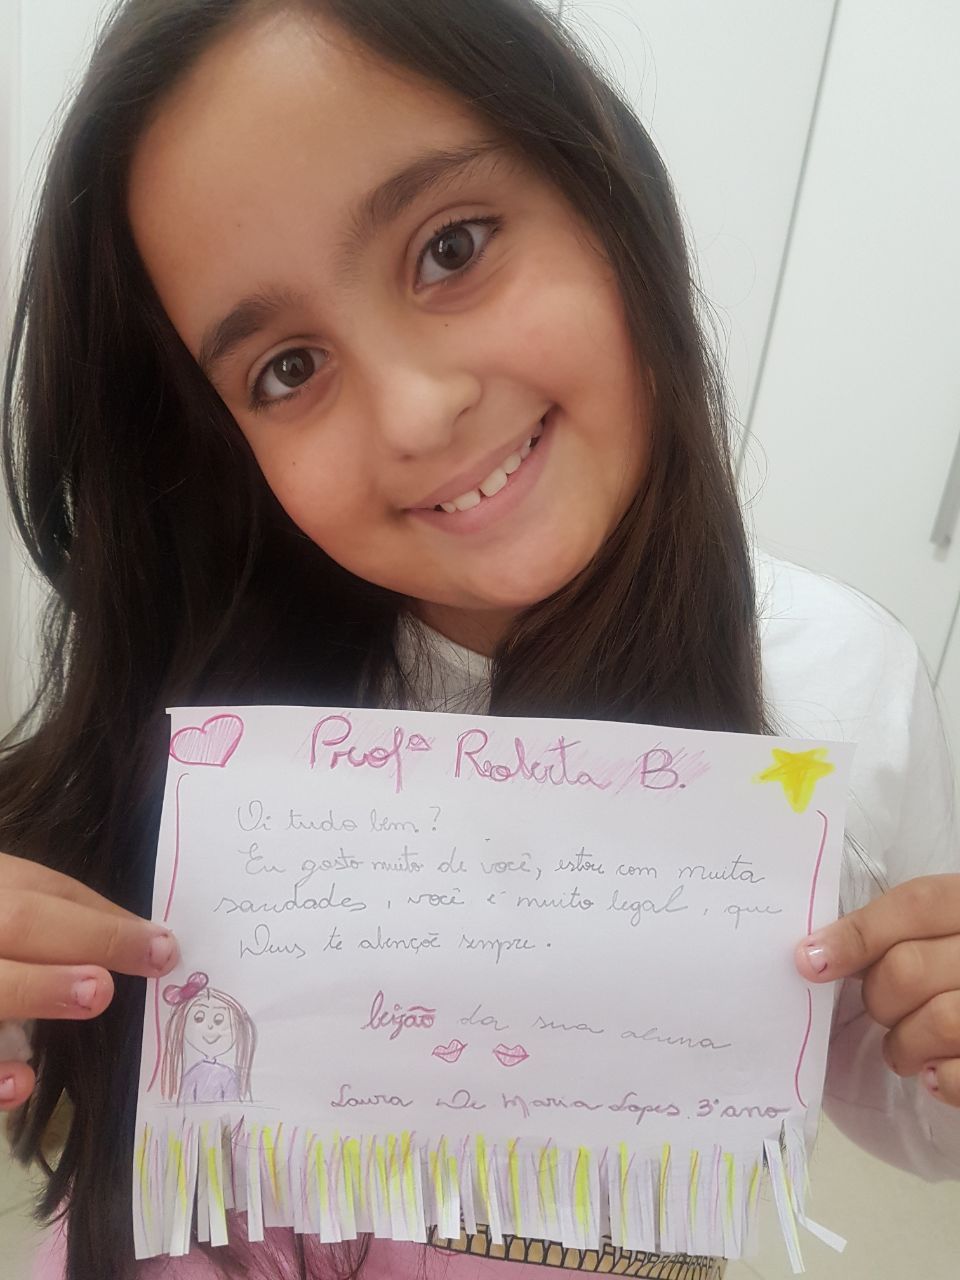 Profª Roberta B.
Oi tudo bem?
Eu gosto muito de você, estou com muita
saudades, você é muito legal, que
Deus te abençõe sempre.
beijão da sua aluna
Laura De Maria Lopes. 3° ano